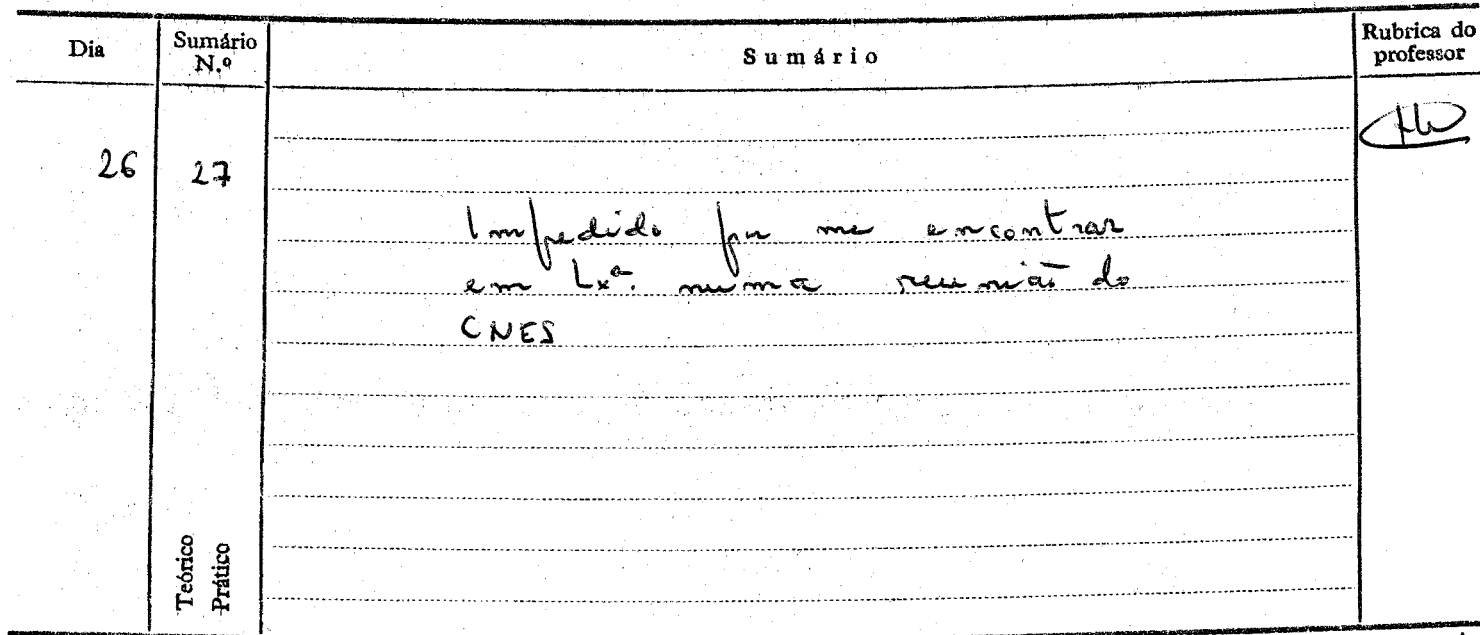 Dia
Sumário N.º
Sumário
Rubrica do professor
26
27
Impedido por me encontrar
em Lxª. numa reunião do
CNES
Teórico
Prático